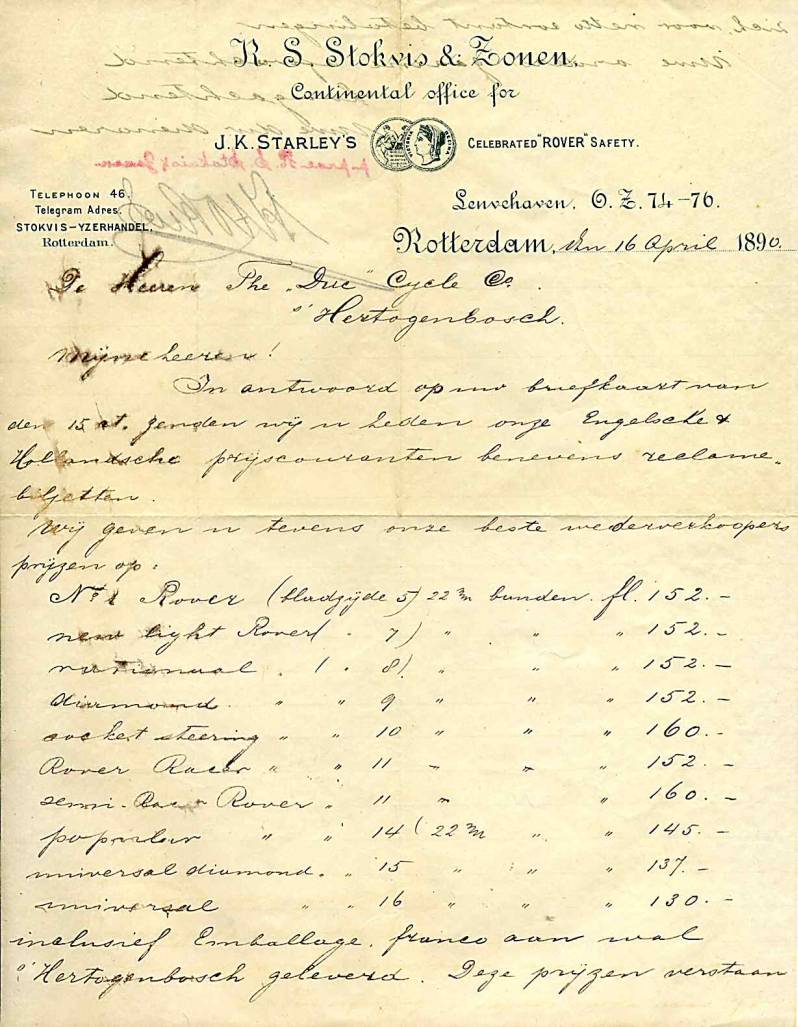 R. S. Stokvis & Zonen.
Continental office for
J. K. STARLEY'S CELEBRATED "ROVER" SAFETY.
TELEPHOON 46.
Telegram Adres.
STOKVIS-YZERHANDEL,
Rotterdam.
Leuvehaven. O. Z. 74-76.
Rotterdam, den 16 April 1890.
De Heeren The "Duc" Cycle Co.
s'Hertogenbosch.
Mijneheeren!
In antwoord op uw briefkaart van
den 15 st. zenden wij u heden onze Engelsche &
Hollandsche prijscouranten benevens reclame-
biljetten.
Wij geven u tevens onze beste wederverkoopers
prijzen op:
No 1 Rover (bladzijde 5) 22 m/m banden. fl. 152.-
new light Rover ( " 7) " " " 152.-
nationaal. ( " 8) " " " 152.-
diamond. " " 9 " " " 152.-
socket steering " " 10 " " " 160.-
Rover Racer " " 11 " " " 152.-
semi-Racer Rover " 11 " " 160.-
popular " " 14 (22 m/m " " 145.-
universal diamond. " " 15 " " " 137.-
universal " " 16 " " " 130.-
inclusief Emballage. franco aan wal
s'Hertogenbosch geleverd. Deze prijzen verstaan